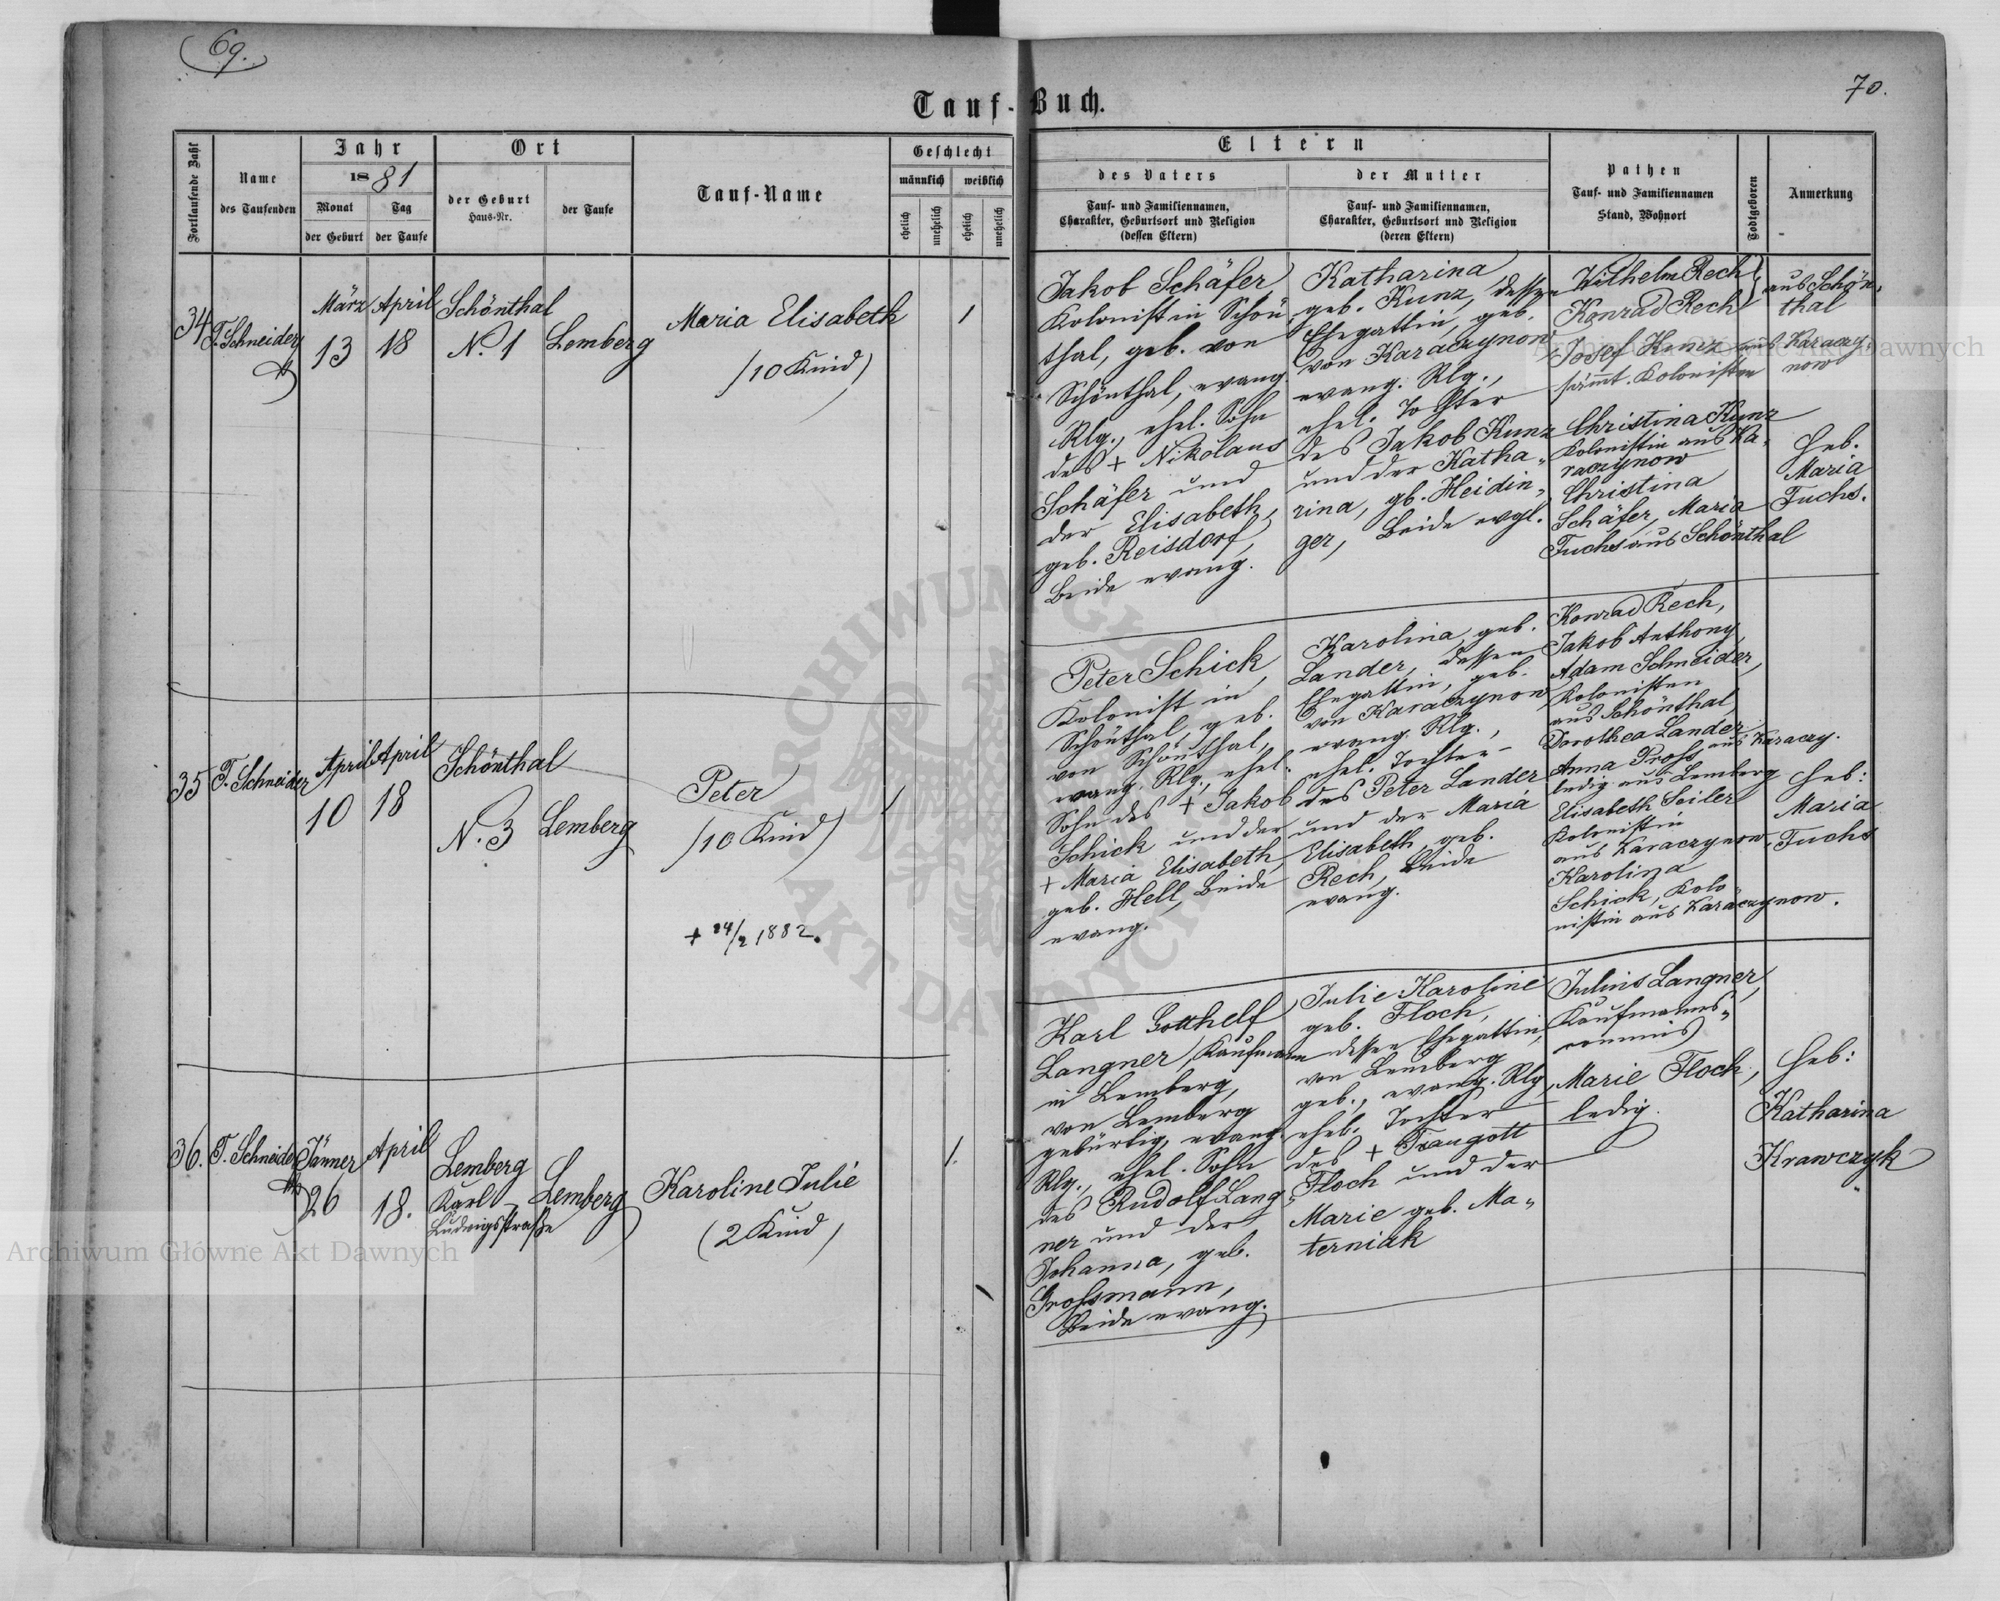 69.
70.
Tauf-Buch.
Fortlaufende Zahl
Name
des Taufenden
Jahr
1881
Monat
der Geburt
Tag
der Taufe
Ort
der Geburt
Haus-Nr.
der Taufe
Tauf-Name
Geschlecht
männlich
weiblich
ehelich
unehelich
ehelich
unehelich
Eltern
des Vaters
Tauf- und Familiennamen,
Charakter, Geburtsort und Religion
(dessen Eltern)
der Mutter
Tauf- und Familiennamen,
Charakter, Geburtsort und Religion
(deren Eltern)
Pathen
Tauf- und Familiennamen
Stand, Wohnort
Todtgeboren
Anmerkung
34
T. Schneider
März
13
April
18
Schönthal
N. 1
Lemberg
Maria Elisabeth
/10 Kind)
1
Jakob Schäfer
Kolonist in Schön
thal, geb. von
Schönthal, evang.
Rlg., ehel. Sohn
des + Nikolaus
Schäfer und
der Elisabeth,
geb. Reisdorf,
Beide evang.
Katharina
geb. Kunz, dessen
Ehegattin, geb.
von Karaczynow
evang. Rlg.,
ehel. Tochter
des Jakob Kunz
und der Katha„
rina, gb. Heidin„
ger, Beide evgl.
Wilhelm Rech
Konrad Rech
Josef Kunz
sämmt. Kolonisten
Christina Kunz
Kolonistin aus Ka„
raczynow
Christina
Schäfer, Maria
Fuchs aus Schönthal
aus Schön„
thal
aus Karaczy„
now
Heb.
Maria
Fuchs.
35
T. Schneider
April
10
April
18
Schönthal
N. 3
Lemberg
Peter
/10 Kind)
+ 24/2 1882.
1
Peter Schick,
Kolonist in
Schönthal, geb.
von Schönthal,
evang. Rlg., ehel.
Sohn des + Jakob
Schick und der
+ Maria Elisabeth,
geb. Hell, Beide
evang.
Karolina, geb.
Lander, dessen
Ehegattin, geb.
von Karaczynow
evang. Rlg.,
ehel. Tochter
des Peter Lander
und der Maria
Elisabeth, geb.
Rech, Beide
evang.
Konrad Rech,
Jakob Anthony,
Adam Schneider,
Kolonisten
aus Schönthal
Dorothea Lander
aus Karaczy.
Anna Pross
ledig aus Lemberg
Elisabeth Seiler
Kolonistin
aus Karaczynow,
Karolina
Schick, Kolo„
nistin aus Karaczynow.
Heb:
Maria
Fuchs
36.
T. Schneider
Jänner
26
April
18.
Lemberg
Karl
Ludwigsstraße
Lemberg
Karoline Julie
(2 Kind)
1.
Karl Gotthelf
Langner, Kaufmann
in Lemberg,
von Lemberg
gebürtig, evang.
Rlg., ehel. Sohn
des Rudolf Lang„
ner und der
Johanna, geb.
Grossmann,
Beide evang.
Julie Karoline
geb. Floch,
dessen Ehegattin,
von Lemberg
geb., evang. Rlg,
ehel. Tochter
des + Traugott
Floch und der
Marie geb. Ma„
terniak
Julius Langner,
Kaufmanns„
commis
Marie Floch,
ledig.
Heb:
Katharina
Krawczyk
Archiwum Główne Akt Dawnych
Archiwum Główne Akt Dawnych